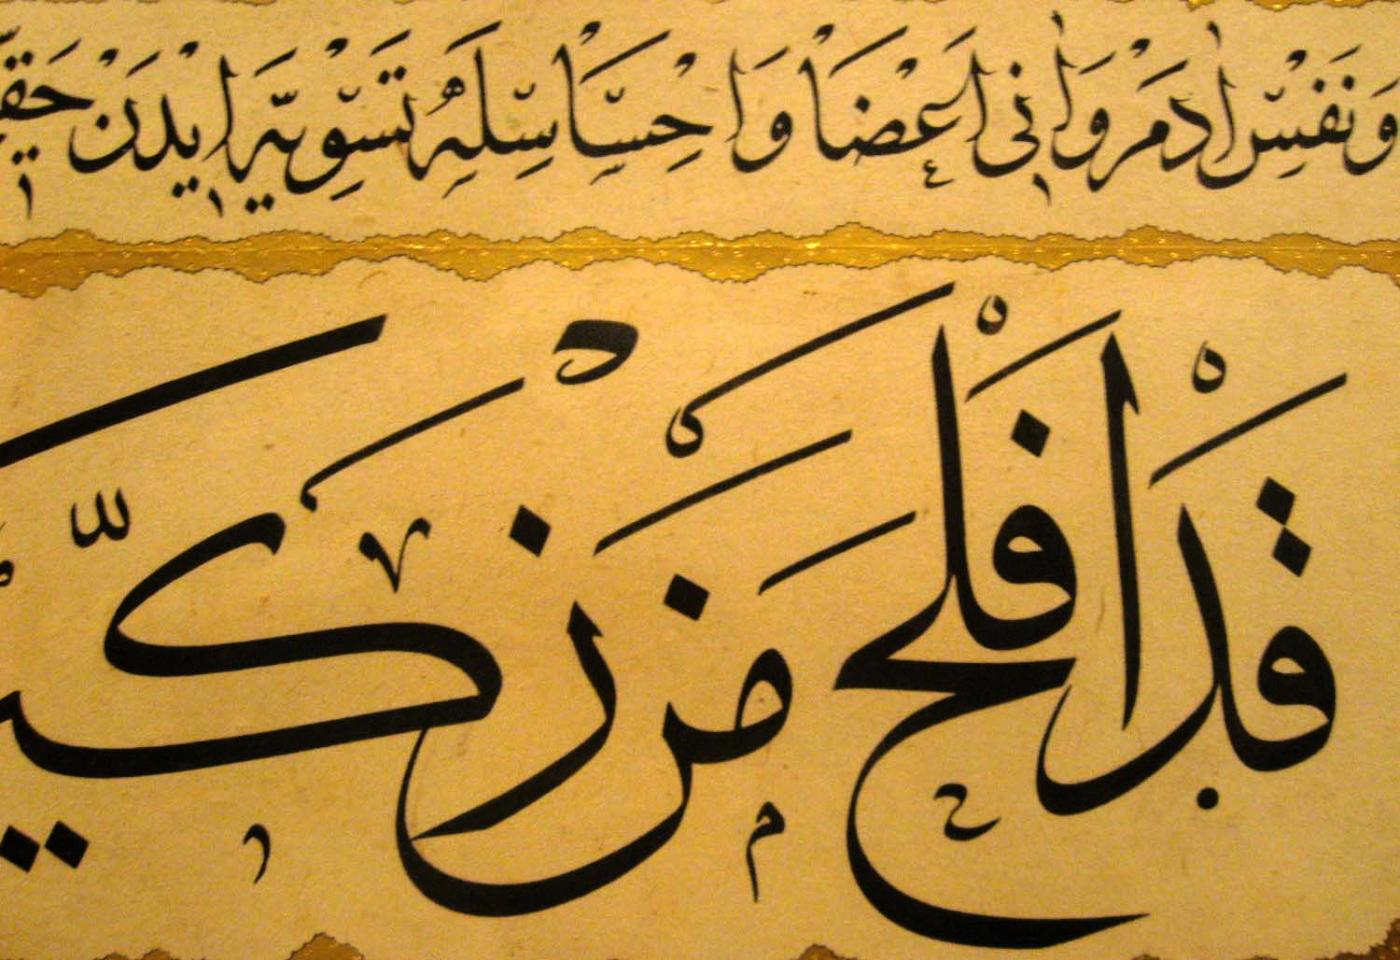 وَنَفْسِ اٰدَمْ وَانِى اَعْضَا وَاحْسَاسِلَه تَسْوِيَه ايدَنْ
قَدْ اَفْلَحَ مَنْ زَكّٰي